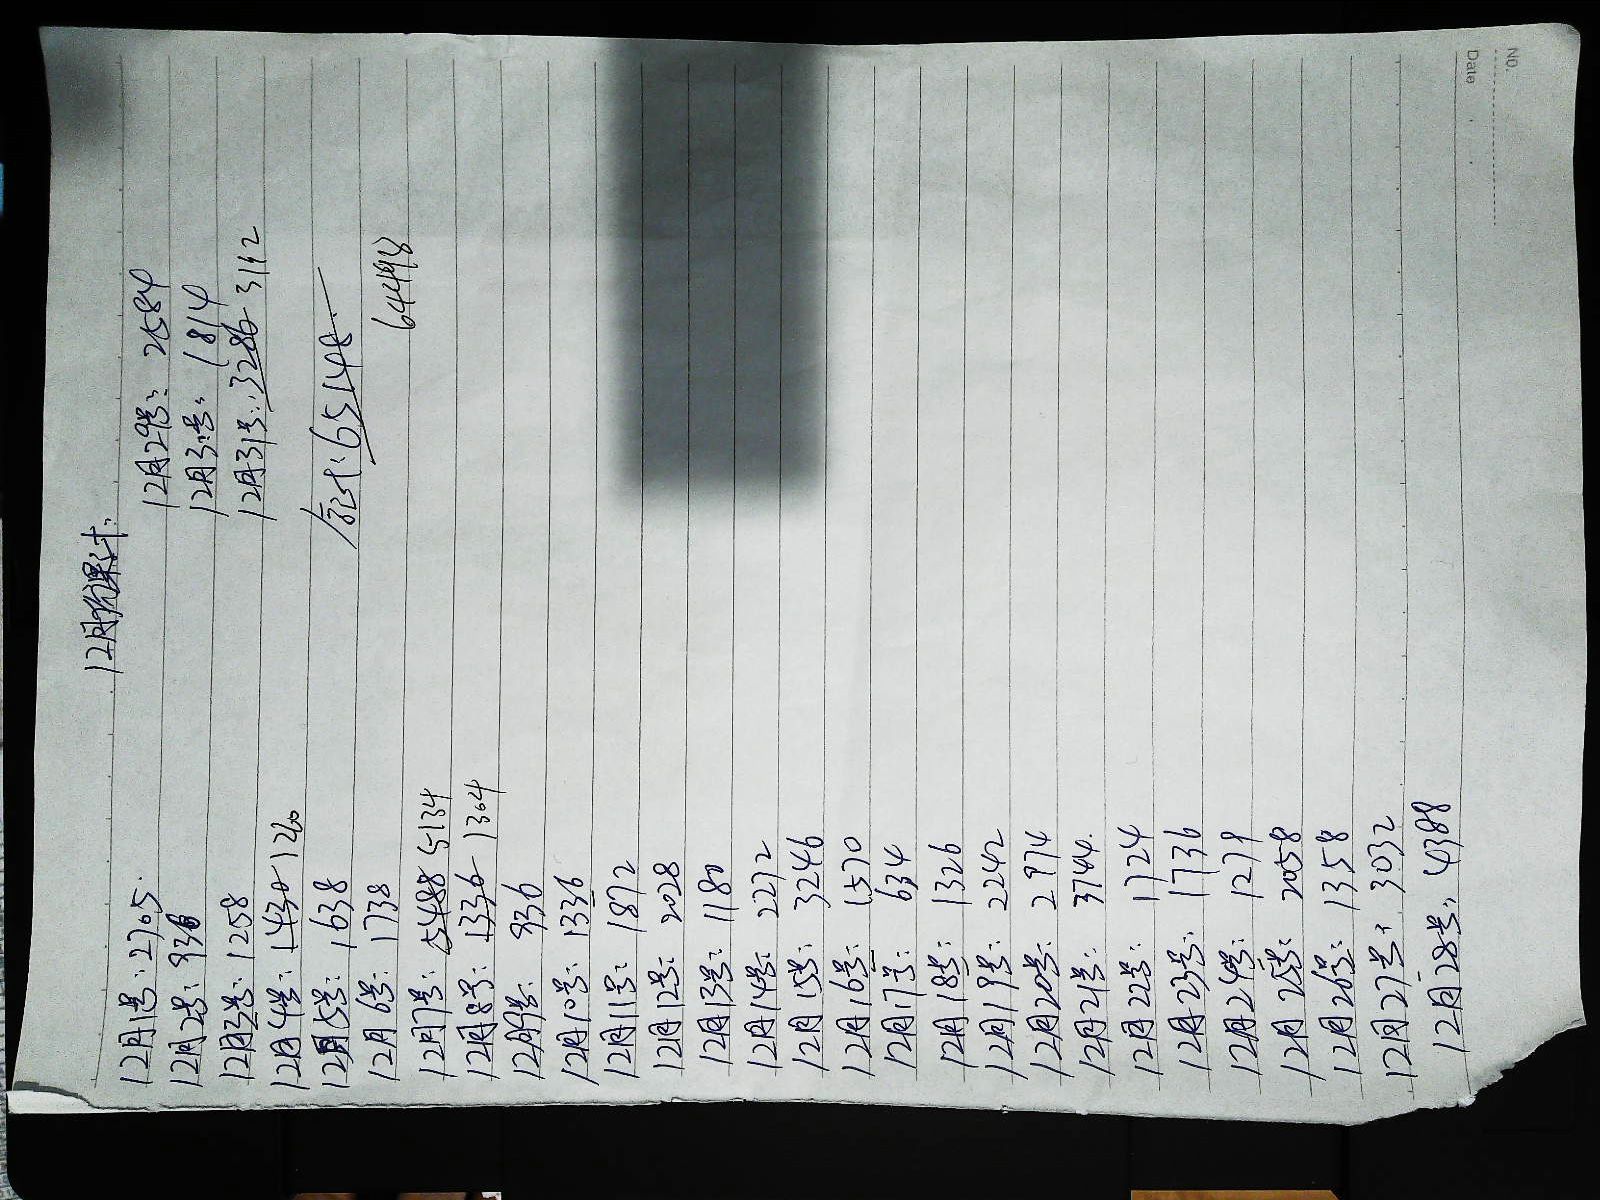 NO.
Date
12月份课时:
12月1号:2705.
12月2号:936
12月3号:1258
12月4号:1430 1260
12月5号:1638
12月6号:1738
12月7号:5488 5134
12月8号:1336 1304
12月9号:936
12月10号:1336
12月11号:1872
12月12号:2028
12月13号:1180
12月14号:2272
12月15号:3246
12月16号:1570
12月17号:634
12月18号:1326
12月19号:2242
12月20号:2974
12月21号:3744.
12月22号:1724
12月23号:1736
12月24号:1279
12月25号:2058
12月26号:1358
12月27号:3032
12月28号:4388
12月29号:2584
12月30号:1814
12月31号:3286 3112
合计:65148.
64498